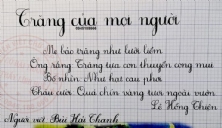 Trăng của mọi người
Mẹ bảo trăng như lưỡi liềm
Ông rằng Trăng tựa con thuyền cong mui
Bà nhìn: Như hạt cau phơi
Cháu cười: Quả chín vàng tươi ngoài vườn
Lê Hồng Thiện
Người viết Bùi Hữu Thanh